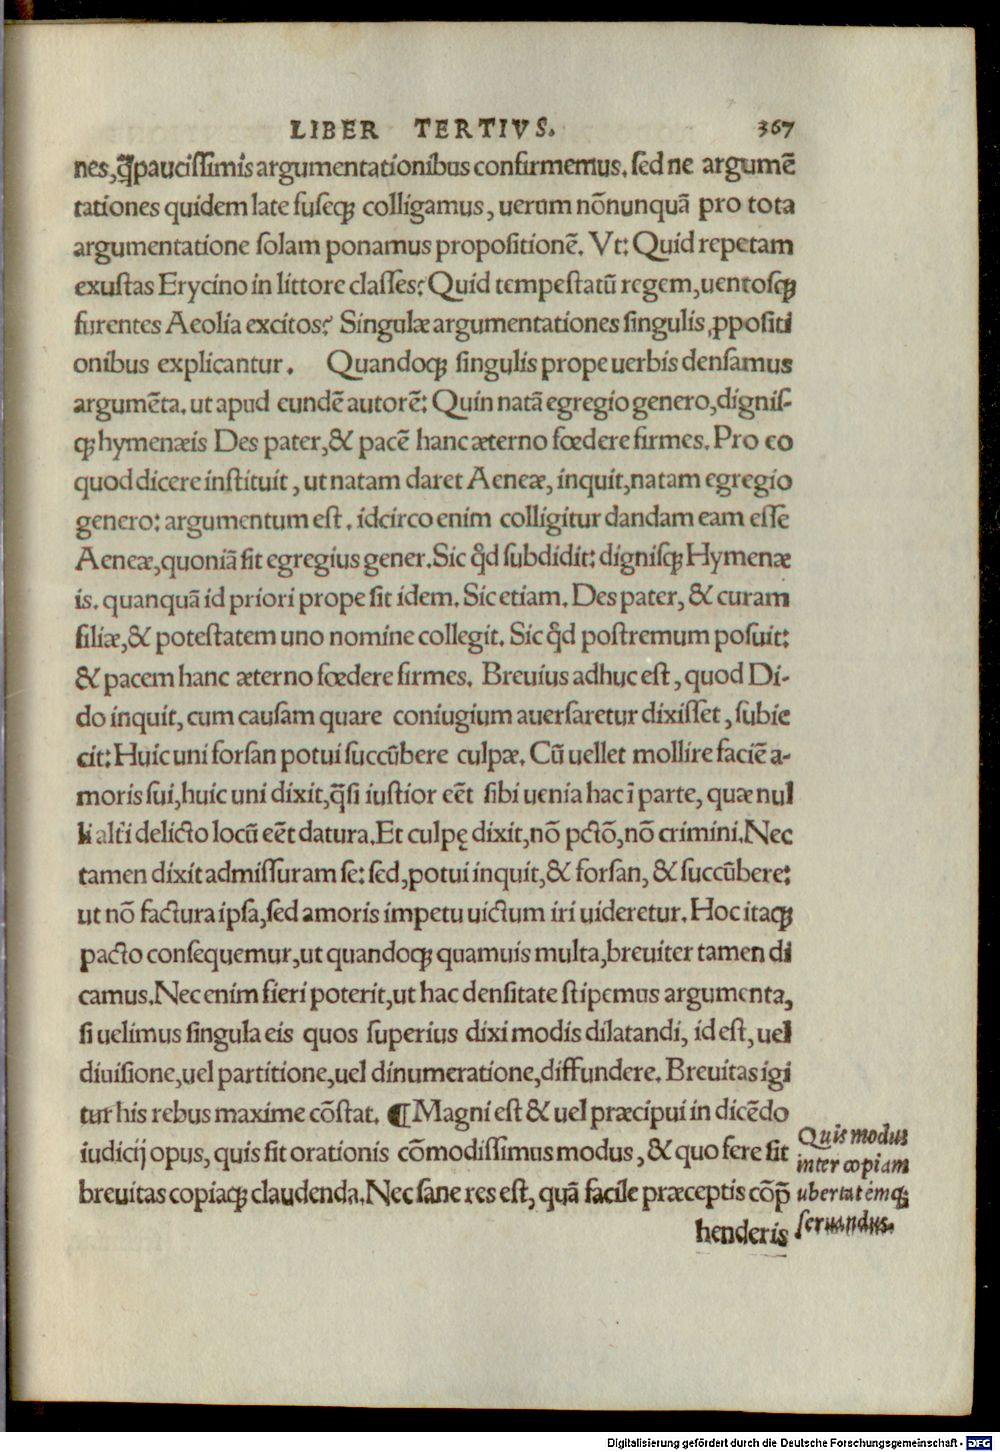 LIBER TERTIVS. 367
nes, q̃ꝫ paucissimis argumentationibus confirmemus. sed ne argumē
tationes quidem late fuseqꝫ colligamus, uerum nōnunquā pro tota
argumentatione solam ponamus propositionē. Vt: Quid repetam
exustas Erycino in littore classes? Quid tempestatū regem, uentosqꝫ
furentes Aeolia excitos? Singulæ argumentationes singulis ꝓpositi
onibus explicantur. Quandoqꝫ singulis prope uerbis densamus
argumēta. ut apud eundē autorē: Quin natā egregio genero, dignis-
qꝫ hymenæis Des pater, & pacē hanc æterno fœdere firmes. Pro eo
quod dicere instituit, ut natam daret Aeneæ, inquit, natam egregio
genero: argumentum est. idcirco enim colligitur dandam eam esse
Aeneæ, quoniā sit egregius gener. Sic qd̃ subdidit: dignisqꝫ Hymenæ
is. quanquā id priori prope sit idem. Sic etiam. Des pater, & curam
filiæ, & potestatem uno nomine collegit. Sic qd̃ postremum posuit:
& pacem hanc æterno fœdere firmes. Breuius adhuc est, quod Di-
do inquit, cum causam quare coniugium auersaretur dixisset, subie
cit: Huic uni forsan potui succūbere culpæ. Cū uellet mollire faciē a-
moris sui, huic uni dixit, q̃si iustior eēt sibi uenia hac ī parte, quæ nul
li alt̃i delicto locū eēt datura. Et culpę dixit, nō pctō, nō crimini. Nec
tamen dixit admissuram se: sed, potui inquit, & forsan, & succūbere:
ut nō factura ipsa, sed amoris impetu uictum iri uideretur. Hoc itaqꝫ
pacto consequemur, ut quandoqꝫ quamuis multa, breuiter tamen di
camus. Nec enim fieri poterit, ut hac densitate stipemus argumenta,
si uelimus singula eis quos superius dixi modis dilatandi, id est, uel
diuisione, uel partitione, uel dinumeratione, diffundere. Breuitas igi
tur his rebus maxime cōstat. ¶ Magni est & uel præcipui in dicēdo
iudicij opus, quis sit orationis cōmodissimus modus, & quo fere sit
breuitas copiaqꝫ claudenda. Nec sane res est, quā facile præceptis cōp̃
henderis
Quis modus
inter copiam
ubertatemqꝫ
seruandus.
Digitalisierung gefördert durch die Deutsche Forschungsgemeinschaft - DFG